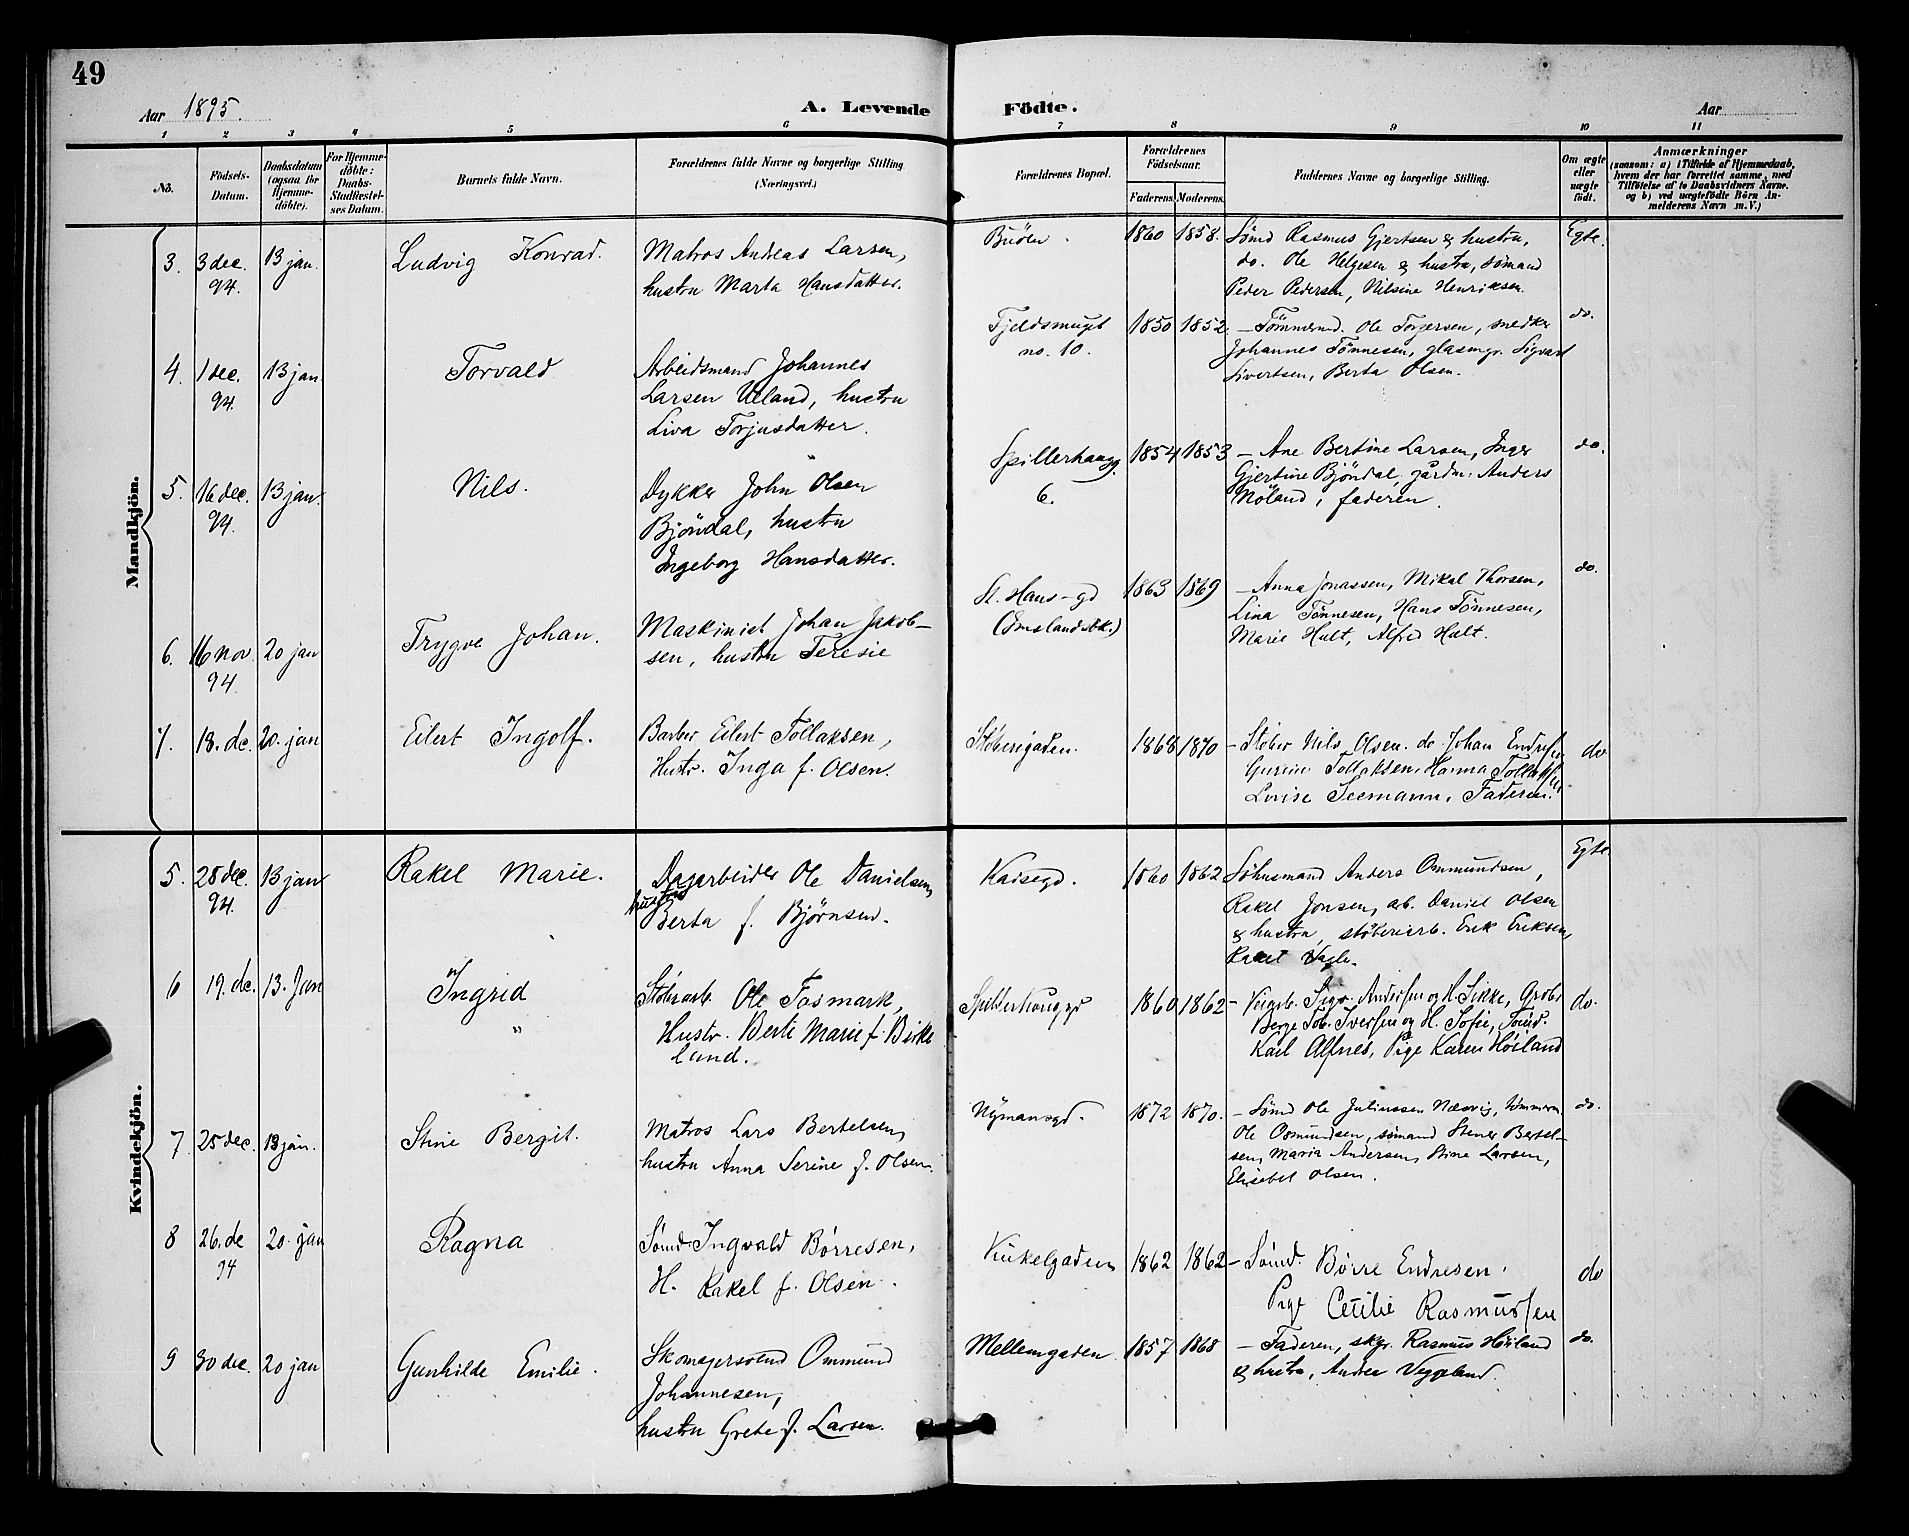 49
Aar 1895.
A. Levende Födte.
Aar
1 2 3 4 5 6 7 8 9 10 11
No.
Födsels-
Datum.
Daabsdatum
(ogsaa for
Hjemme-
döbte).
For Hjemme-
döbte:
Daabs-
Stadfæstel-
ses Datum.
Barnets fulde Navn.
Forældrenes fulde Navne og borgerlige Stilling
(Næringsvei.)
Forældrenes Bopæl.
Forældrenes
Födselsaar.
Faderens Moderens
Faddernes Navne og borgerlige Stilling.
Om ægte
eller
uægte
födt.
Anmærkninger
(saasom: a) i Tilfælde af Hjemmedaab,
hvem der har forrettet samme, med
Tilföielse af to Daabsvidners Navne.
og b) ved uægtefödte Börn An-
melderens Navn m.V.)
Mandkjön.
3. 3 dec. 94. 13 jan. Ludvig Konrad.
Matros Andreas Larsen,
hustru Marta Hansdatter.
Buöen. 1860 1858.
Sömd Rasmus Gjertsen & hustru,
do. Ole Helgesen & hustru, sömand
Peder Pedersen, Nilsine Henriksen.
Egte.
4. 1 dec. 94. 13 jan Torvald
Arbeidsmand Johannes
Larsen Ueland, hustru
Liva Torjusdatter.
Fjeldsmuget
no. 10.
1850 1852.
— Tömmermd. Ole Torgersen, snedker
Johannes Tönnesen, glasmgr. Sigvart
Sivertsen, Berta Olsen.
do.
5. 16 dec. 94. 13 jan. Nils.
Dykker John Olsen
Bjöndal, hustru
Ingeborg Hansdatter.
Spillerhaugg.
6.
1854 1853
— Ane Bertine Larsen, Inger
Gjertine Bjöndal, gårdm. Anders
Möland, faderen.
do.
6. 16 nov. 94. 20 jan Trygve Johan.
Maskinist Johan Jakob-
sen, hustru Teresie
St. Hans-gd
(Emslandsbk.)
1863 1869
— Anna Jonassen, Mikal Thorsen,
Lina Tönnesen, Hans Tönnesen,
Marie Hult, Alfred Hult.
do.
7. 18. de. 20. jan Eilert Ingolf.
Barber Eilert Tollaksen,
Hustr. Inga f. Olsen.
Stöberigaden. 1868 1870
— Stöber Nils Olsen. do Johan Endresen
Gurine Tollaksen, Hanna Tollaksen,
Lovise Seemann, Faderen.
do
Kvindekjön.
5. 28 dec. 94. 13 jan Rakel Marie.
Dagarbeider Ole Danielsen,
hustru
Berta f. Björnsen.
Kaisegd. 1860 1862
Söhusmand Anders Ommundsen,
Rakel Jonsen, arb. Daniel Olsen
& hustru, stöberiarb. Erik Eriksen,
Rakel Vagle.
Egte.
6 19. de. 13. Jan Ingrid
"
Stöberarb. Ole Fosmark,
Hustr. Berte Marie f. Birke
land.
Spilderhauggd 1860 1862
Andersen og H. Sikke,
Berge Tob. Iversen og H. Sofie, Sömd.
Karl Alfnes, Pige Karen Höiland
do.
7. 25 dec. 13 jan. Stine Bergit.
Matros Lars Bertelsen,
hustru Anna Serine f. Olsen.
Nymansgd. 1872 1870.
— Sömd Ole Juliussen Næsvig, tömmerm.
Ole Osmundsen, sömand Stener Bertel-
sen, Maria Andersen, Stine Larsen,
Elisebet Olsen.
do.
8 26. de 94 20. jan Ragna
Sömd. Ingvald Börresen,
H. Rakel f. Olsen.
Kirkelgaden 1862 1862
— Sömd. Börre Endresen.
Pige Cecilie Rasmussen
do
9 30 dec. 20 jan Gunhilde Emilie.
Skomagersvend Ommund
Johannesen,
hustru Grete f. Larsen.
Mellemgaden 1857 1868
— Faderen, skgr. Rasmus Höiland
& hustru, Andrea Veggeland.
do.